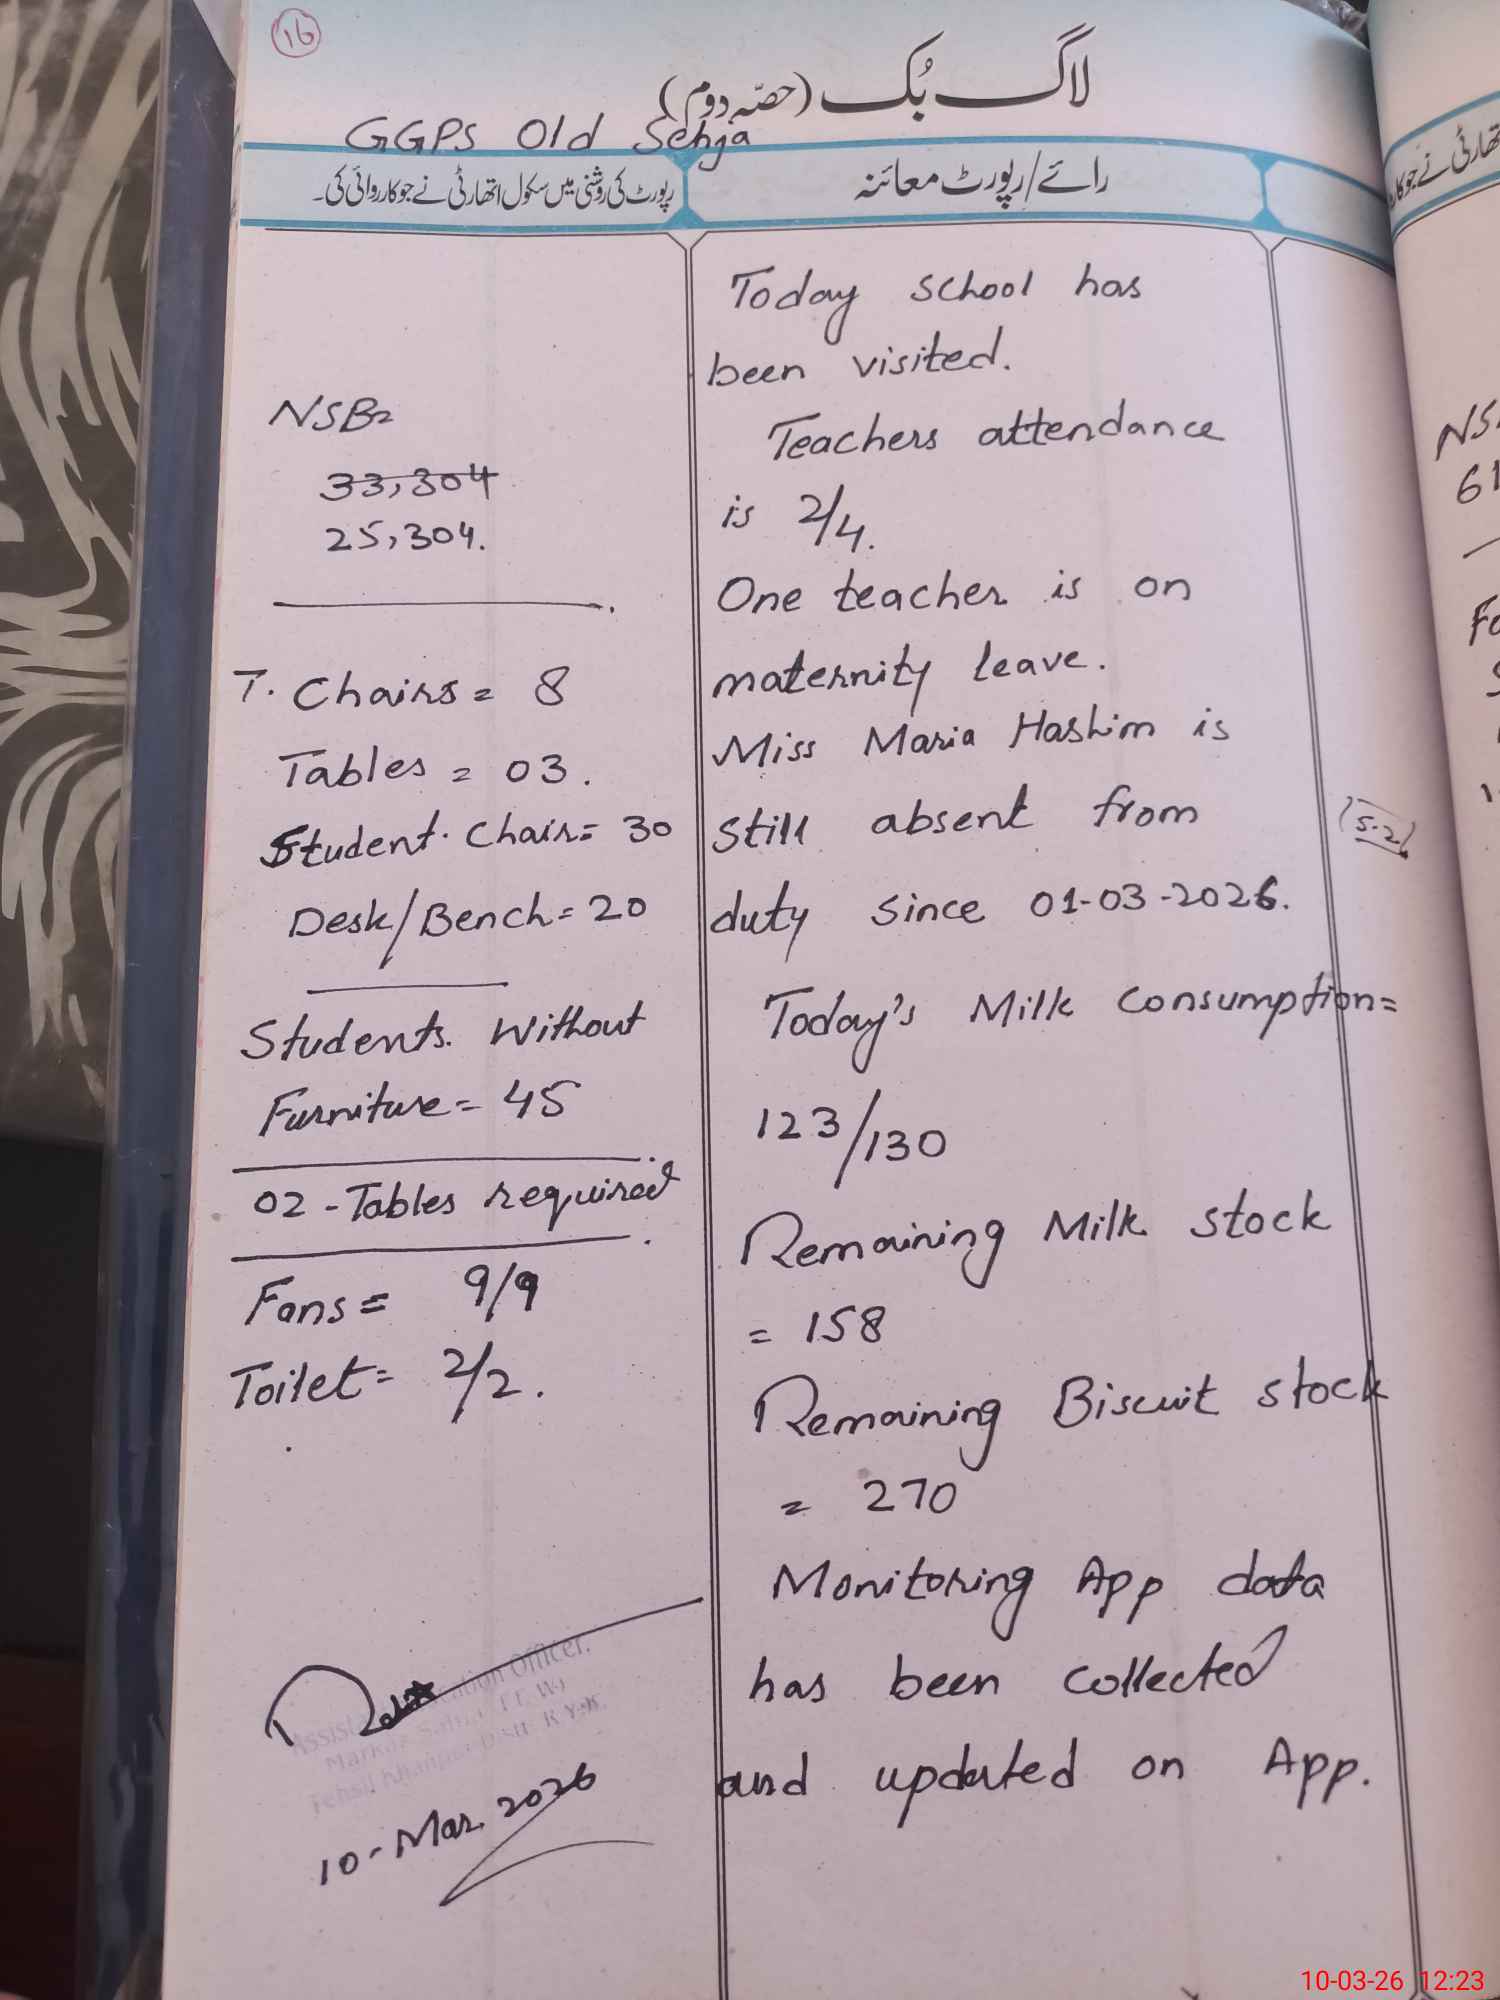 16
لاگ بُک (حصّہ دوم)
GGPS Old Sehja
رائے/رپورٹ معائنہ
رپورٹ کی روشنی میں سکول اتھارٹی نے جو کارروائی کی۔
Today school has
been visited.
Teachers attendance
is 2/4.
One teacher is on
maternity leave.
Miss Maria Hashim is
still absent from
duty since 01-03-2026.
Today's Milk consumption=
123/130
Remaining Milk stock
= 158
Remaining Biscuit stock
= 270
Monitoring App data
has been collected
and updated on App.
NSB=
33,304
25,304.
T. Chairs = 8
Tables = 03.
Student. Chair= 30
Desk/Bench= 20
Students. Without
Furniture= 45
02 - Tables required
Fans = 9/9
Toilet= 2/2.
Officer.
10-Mar. 2026
5-2
61
10-03-26 12:23